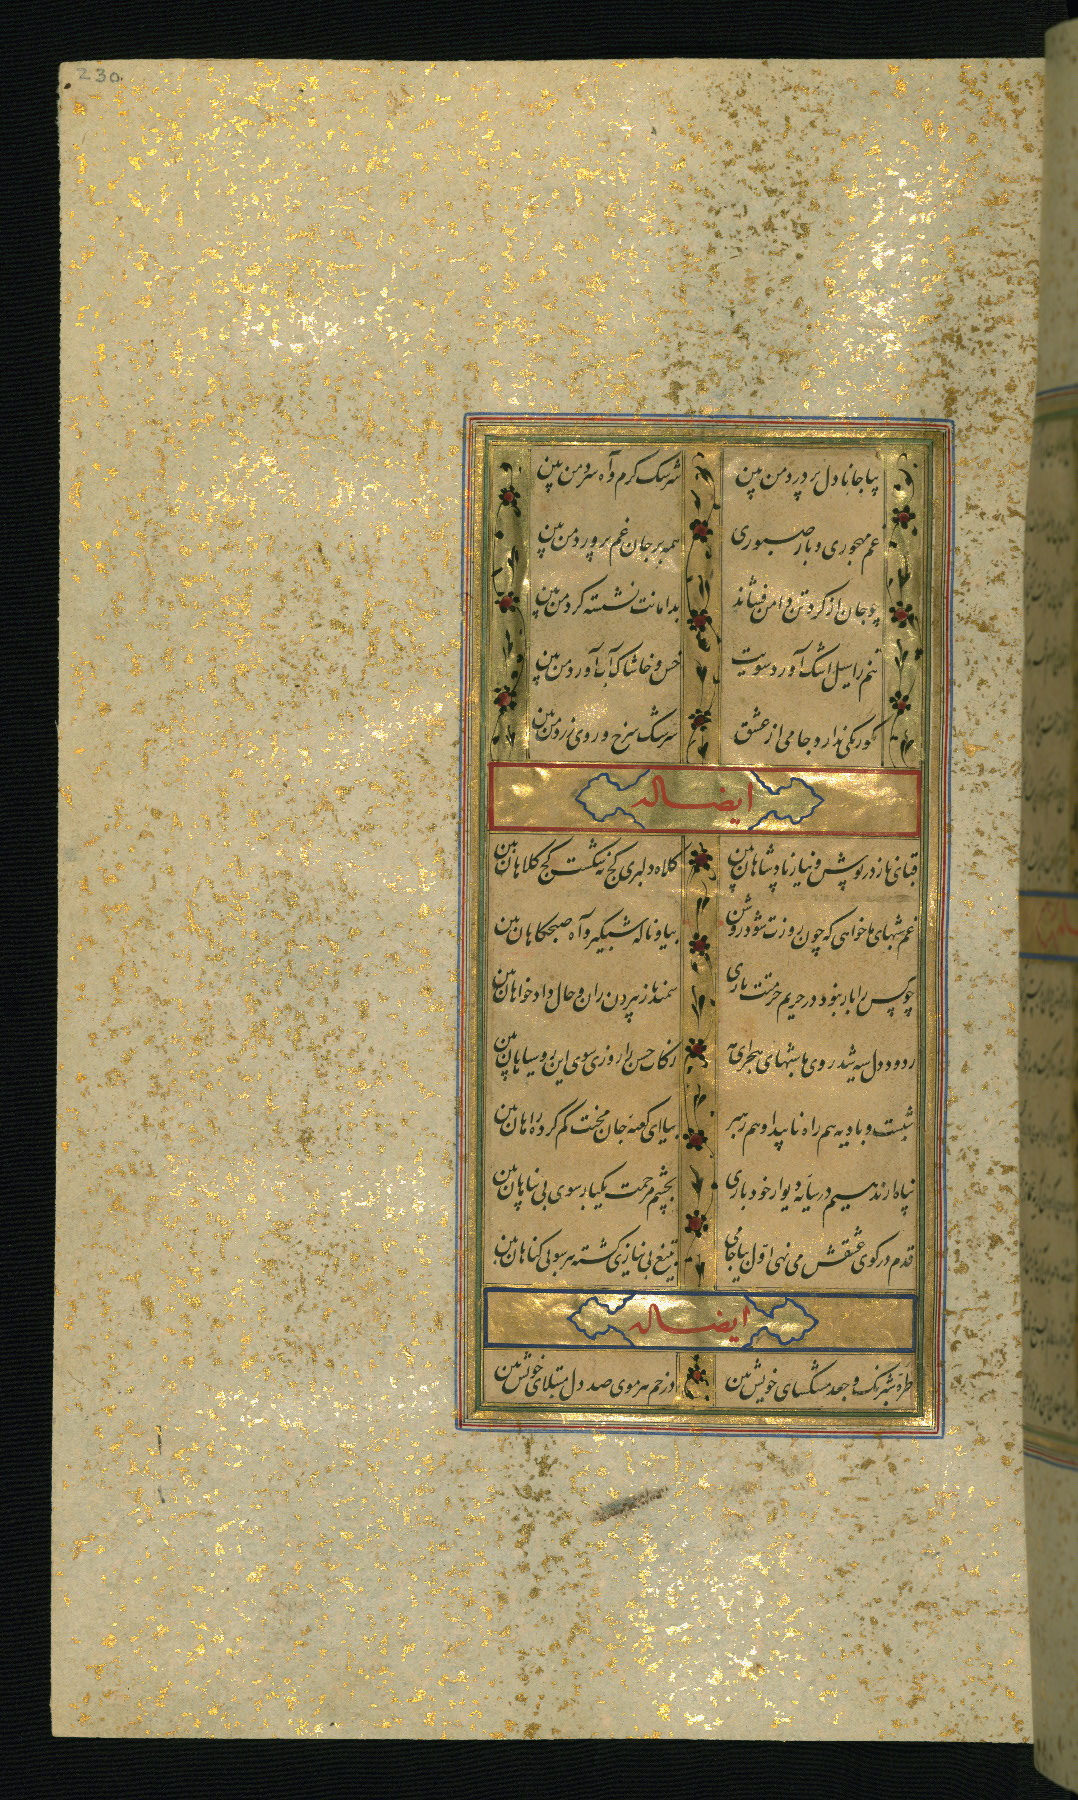 230
بیا جانا دل پر درد من بین
سرشک گرم و آه سرد من بین
غم مهجوری و بار صبوری
همه بر جان غم پرورد من بین
چو جان از گرد تن دامن فشاند
بدامانت نشسته گرد من بین
تنم را سیل اشک آورد سویت
خس و خاشاک آب آورد من بین
گو رنگی ندارد جامی از عشق
سرشک سرخ و روی زرد من بین
ایضا له
قبای ناز در پوش و نیاز پادشاهان بین
کلاه دلبری کج نه شکست کج کلاهان بین
غم شبهای ما خواهی که چون روزت شود روشن
بیا و ناله شبگیر و آه صبحگاهان بین
چو کس را بار نبود در حریم حرمتت باری
سمند ناز بیرون ران و حال دادخواهان بین
ز دود دل سیه شد روی ما شبهای هجر ای مه
ز کاخ حسن را روزی سوی این روسیاهان بین
شبست و بادیه هم راه ناپیدا و هم رهبر
بیا ای کعبه جان محنت گم کرده راهان بین
پناه آرندهیم در سایه دیوار خود باری
بچشم مرحمت یکبار سوی بی پناهان بین
قدم در کوی عشقش می نهی اول بیا جامی
بتیغ بی نیازی کشته هر سو بی گناهان بین
ایضا له
طره شبرنگ و جعد مشکسای خویش بین
در خم هر موی صد دل مبتلای خویش بین